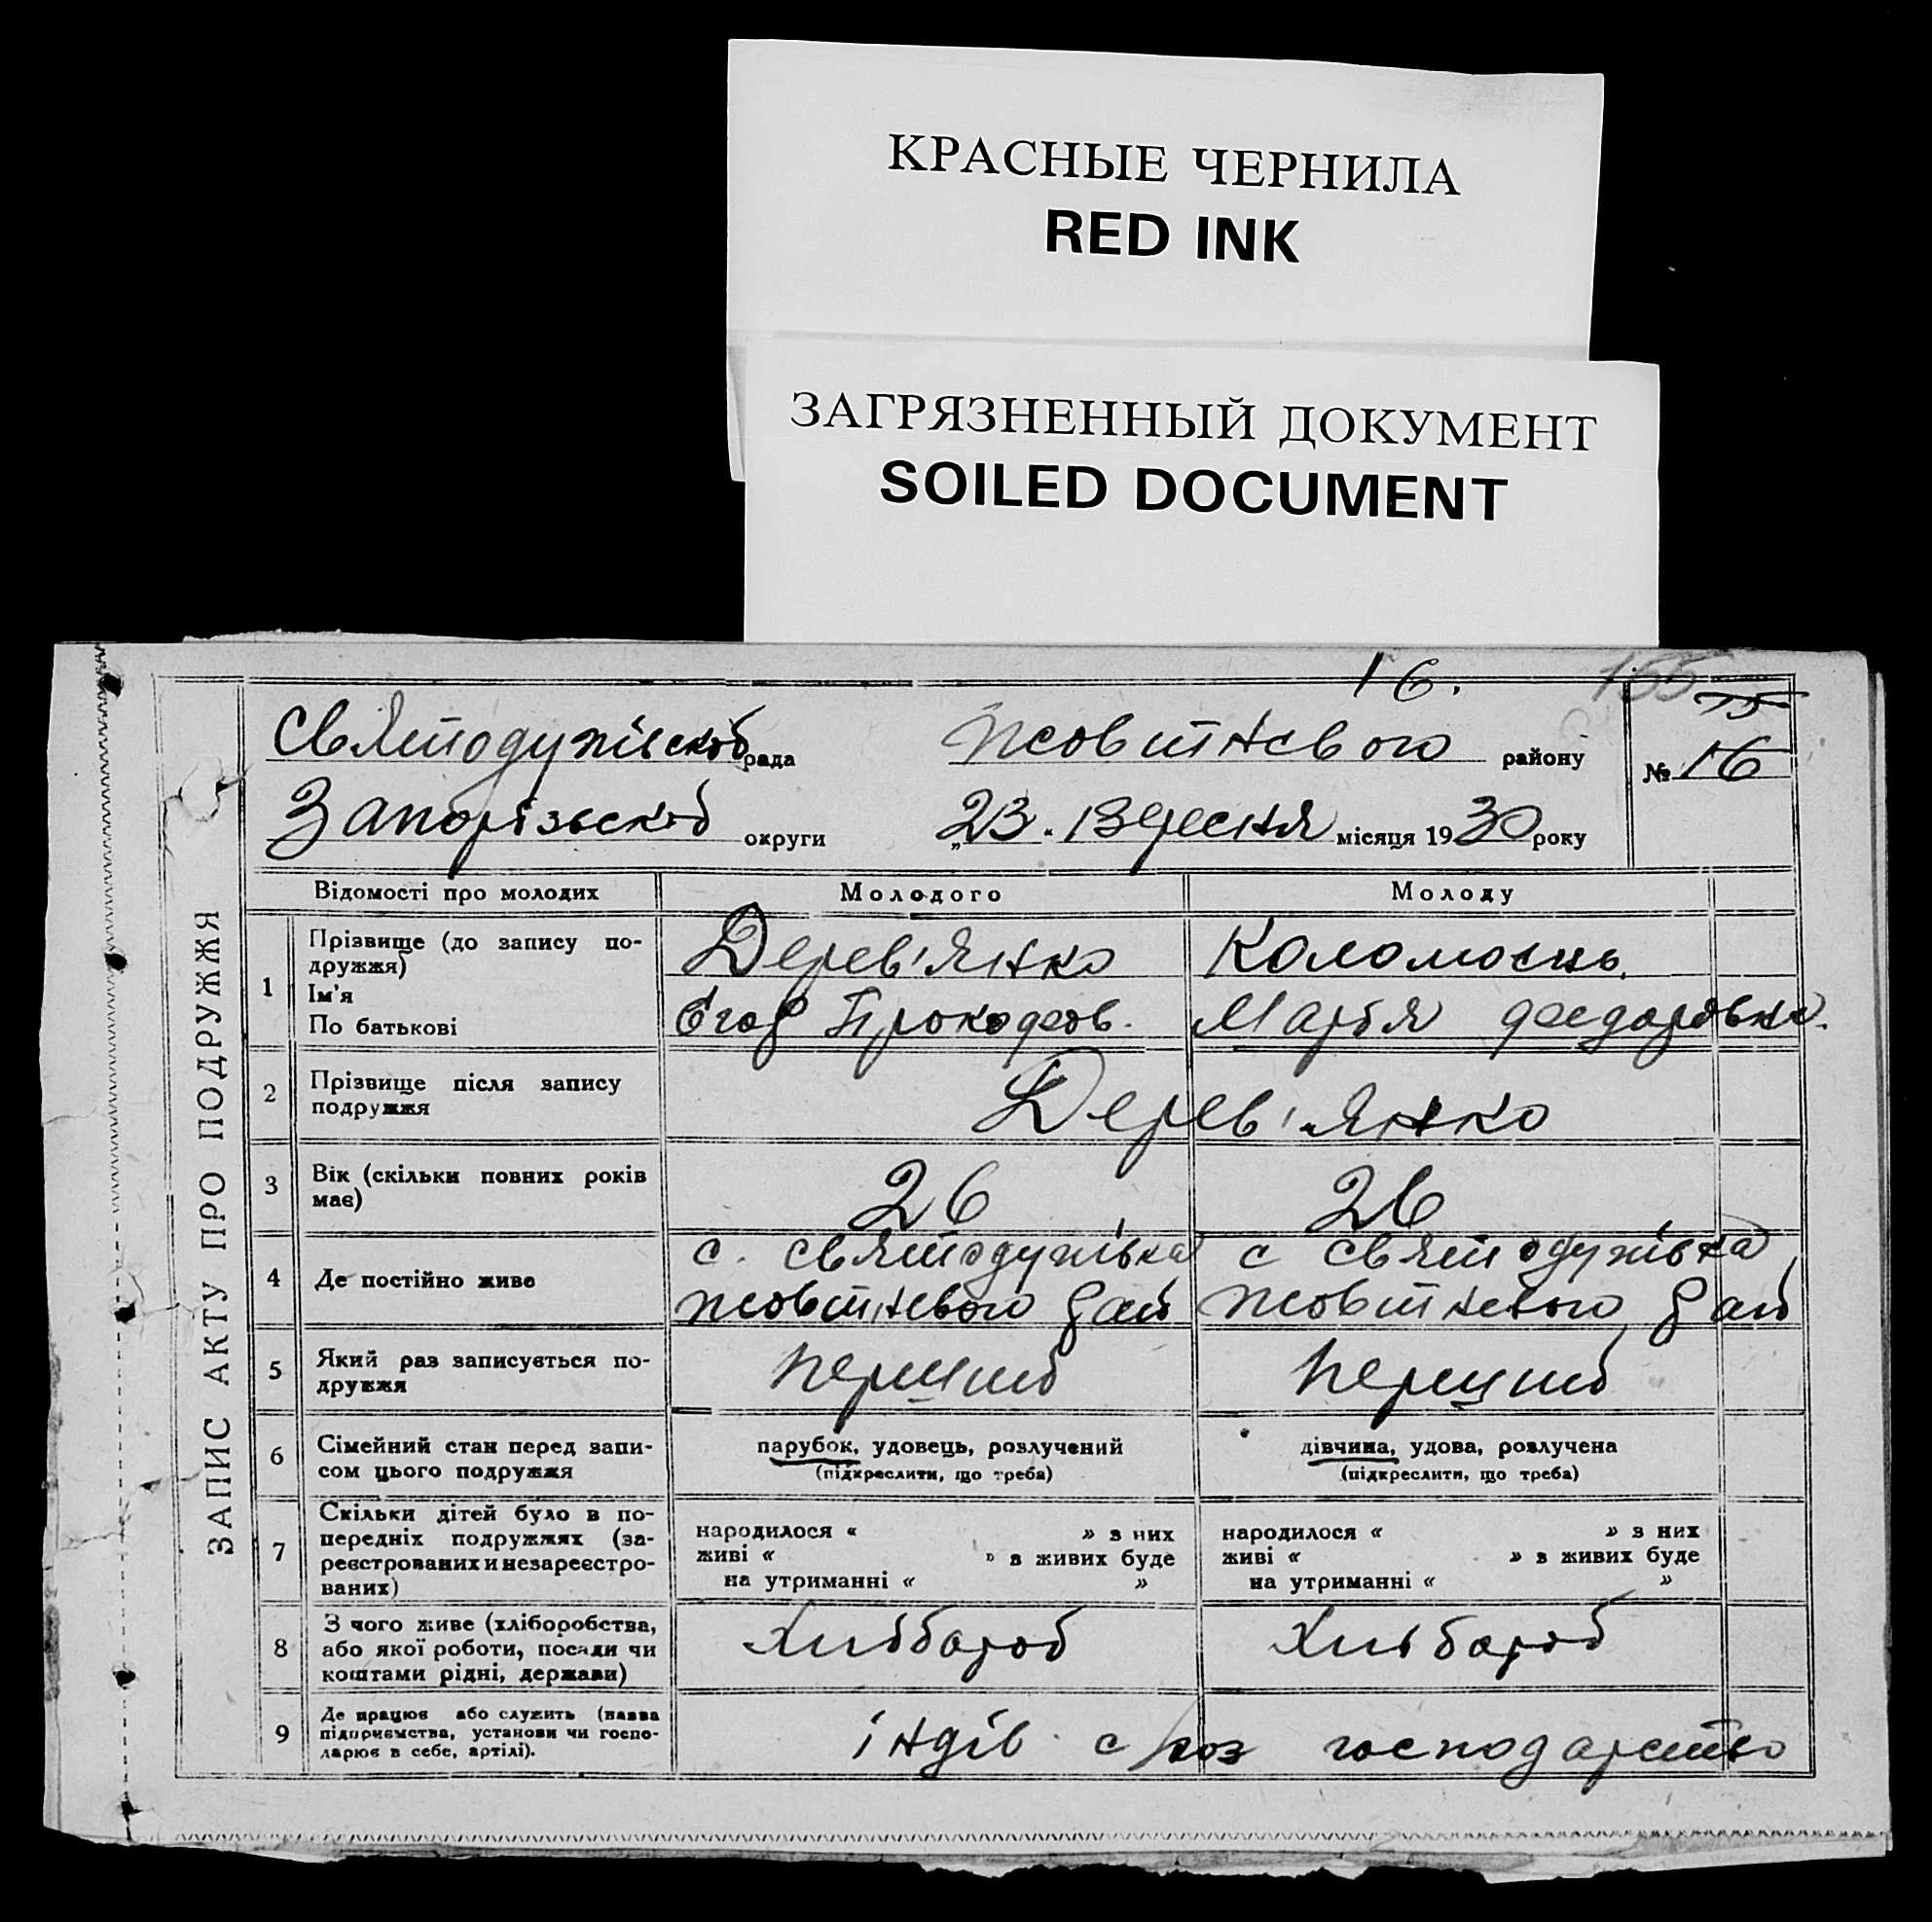 КРАСНЫЕ ЧЕРНИЛА
RED INK
ЗАГРЯЗНЕННЫЙ ДОКУМЕНТ
SOILED DOCUMENT
16. 155
75
Святодухівської рада Жовтневого району № 16
Запорізської округи „23" Вересня місяця 1930 року
ЗАПИС АКТУ ПРО ПОДРУЖЖЯ
Відомості про молодих Молодого Молоду
1 Прізвище (до запису подружжя) Дерев'янко Коломоєць
Ім'я
По батькові Єгор Прокофов. Марія Федоровна.
2 Прізвище після запису подружжя Дерев'янко
3 Вік (скільки повних років має) 26 26
4 Де постійно живе с. Святодухівка с Святодухівка
Жовтневого рай Жовтневого рай
5 Який раз записується по-
дружжя перший перший
6 Сімейний стан перед запи- парубок, удовець, розлучений дівчина, удова, розлучена
сом цього подружжя (підкреслити, що треба) (підкреслити, що треба)
7 Скільки дітей було в по-
передніх подружжях (за- народилося « » з них народилося « » з них
реєстрованих и незареєстро- живі « » з живих буде живі « » з живих буде
ваних) на утриманні « » на утриманні « »
8 З чого живе (хліборобства,
або якої роботи, посади чи Хлібороб Хлібороб
коштами рідні, держави)
9 Де працює або служить (назва
підприємства, установи чи госпо- індів. с/хоз господарство
дарює в себе, артілі).